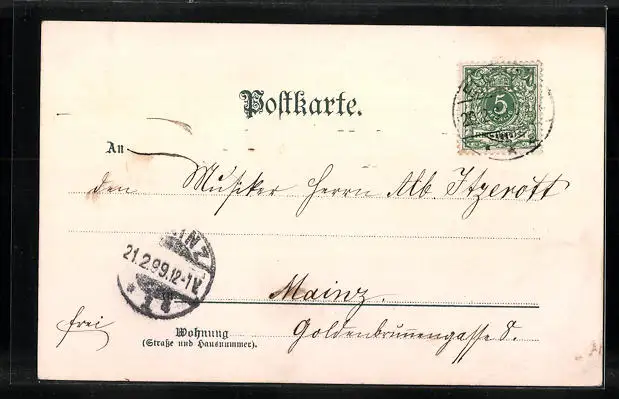 Postkarte.
5
An
den Musiker Herrn Alb. Itzerott
MAINZ
21.2.99.12-1V.
Mainz.
frei
Wohnung
(Straße und Hausnummer).
Goldenbrunnengasse 8.